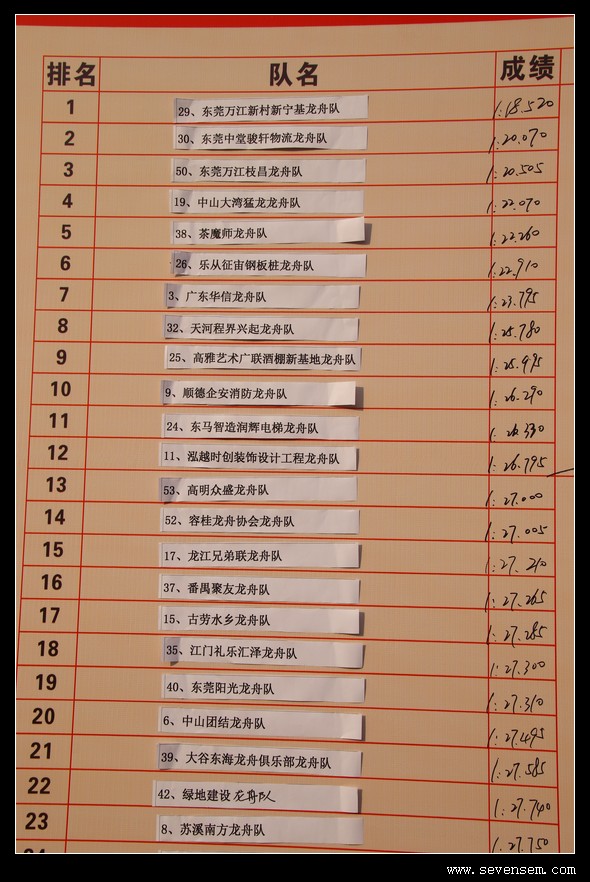 排名 队名 成绩
1 29、东莞万江新村新宁基龙舟队 1:18.520
2 30、东莞中堂骏轩物流龙舟队 1:20.070
3 50、东莞万江枝昌龙舟队 1:20.505
4 19、中山大湾猛龙龙舟队 1:22.070
5 38、茶魔师龙舟队 1:22.260
6 26、乐从征宙钢板桩龙舟队 1:22.910
7 3、广东华信龙舟队 1:23.795
8 32、天河程界兴起龙舟队 1:25.780
9 25、高雅艺术广联酒棚新基地龙舟队 1:25.995
10 9、顺德企安消防龙舟队 1:26.290
11 24、东马智造润辉电梯龙舟队 1:26.330
12 11、泓越时创装饰设计工程龙舟队 1:26.795
13 53、高明众盛龙舟队 1:27.000
14 52、容桂龙舟协会龙舟队 1:27.005
15 17、龙江兄弟联龙舟队 1:27.210
16 37、番禺聚友龙舟队 1:27.265
17 15、古劳水乡龙舟队 1:27.285
18 35、江门礼乐汇泽龙舟队 1:27.300
19 40、东莞阳光龙舟队 1:27.310
20 6、中山团结龙舟队 1:27.495
21 39、大谷东海龙舟俱乐部龙舟队 1:27.585
22 42、绿地建设龙舟队 1:27.740
23 8、苏溪南方龙舟队 1:27.750
www.sevensem.com